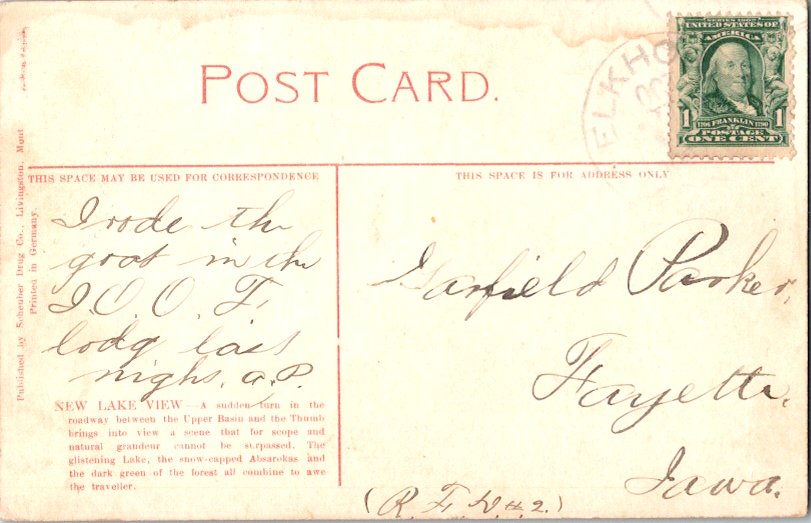 POST CARD.
ELKHO
OCT
SERIES 1902
UNITED STATES OF
AMERICA
1 1706 FRANKLIN 1790 1
POSTAGE
ONE CENT
THIS SPACE MAY BE USED FOR CORRESPONDENCE
THIS SPACE IS FOR ADDRESS ONLY
Published by Scheuber Drug Co., Livingston, Mont
Printed in Germany.
I rode the
goat in the
I. O. O. F.
lodg last
night. a. P.
NEW LAKE VIEW—A sudden turn in the
roadway between the Upper Basin and the Thumb
brings into view a scene that for scope and
natural grandeur cannot be surpassed. The
glistening Lake, the snow-capped Absarokas and
the dark green of the forest all combine to awe
the traveller.
Garfield Parker,
Fayette,
Iowa.
(R. F. D # 2.)